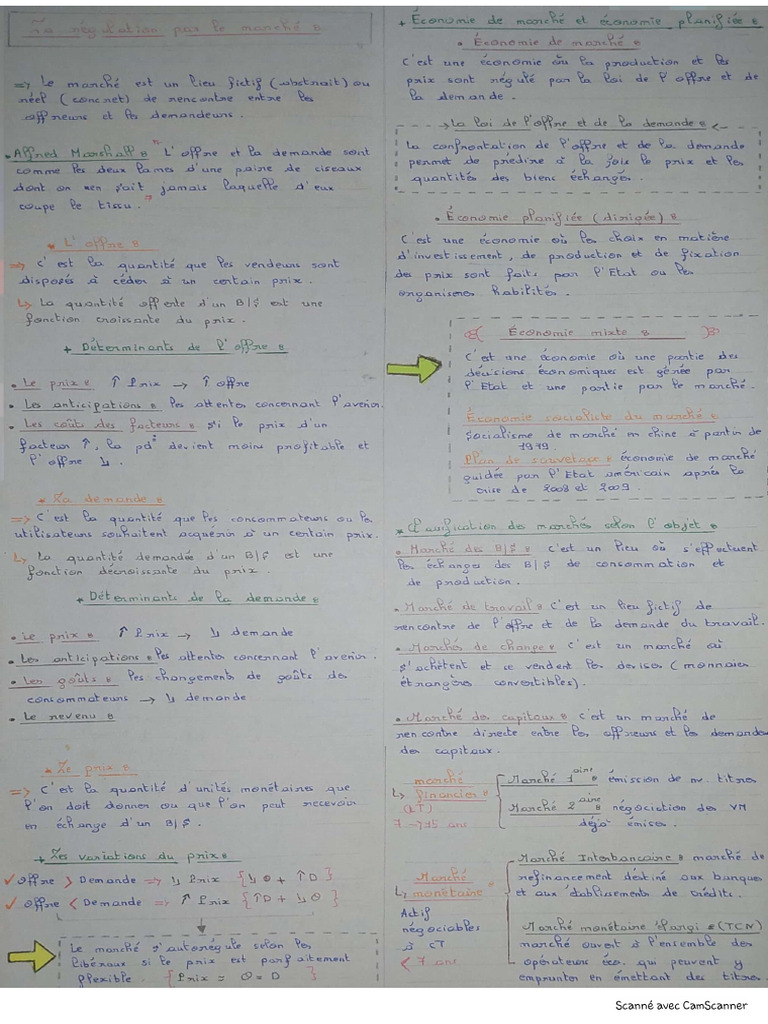 La régulation par le marché :
=> Le marché est un lieu fictif (abstrait) ou
réel (concret) de rencontre entre les
offreurs et les demandeurs.
• Alfred Marshall : " L'offre et la demande sont
comme les deux lames d'une paire de ciseaux
dont on n'en sait jamais laquelle d'eux
coupe le tissu. "
* L'offre :
=> C'est la quantité que les vendeurs sont
disposés à céder à un certain prix.
↳ La quantité offerte d'un B/S est une
fonction croissante du prix.
+ Déterminants de l'offre :
• Le prix : ↑ Prix → ↑ offre
• Les anticipations : les attentes concernant l'avenir.
• Les coûts des facteurs : si le prix d'un
facteur ↑, la pd° devient moins profitable et
l'offre ↘.
* La demande :
=> C'est la quantité que les consommateurs ou les
utilisateurs souhaitent acquérir à un certain prix.
↳ La quantité demandée d'un B/S est une
fonction décroissante du prix.
* Déterminants de la demande :
• Le prix : ↑ Prix → ↘ demande
• Les anticipations : les attentes concernant l'avenir.
• Les goûts : les changements de goûts des
consommateurs → ↘ demande
• Le revenu :
* Le prix :
=> C'est la quantité d'unités monétaires que
l'on doit donner ou que l'on peut recevoir
en échange d'un B/S.
+ Les variations du prix :
✓ Offre > Demande => ↘ Prix {↘O + ↑D}
✓ Offre < Demande => ↑ Prix {↑D + ↘O}
Le marché s'autorégule selon les
libéraux si le prix est parfaitement
flexible. {Prix = O = D}
+ Économie de marché et économie planifiée :
• Économie de marché :
C'est une économie où la production et les
prix sont régulé par la loi de l'offre et de
la demande.
→ La loi de l'offre et de la demande : ←
La confrontation de l'offre et de la demande
permet de prédire à la fois le prix et les
quantités des biens échangés.
• Économie planifiée (dirigée) :
C'est une économie où les choix en matière
d'investissement, de production et de fixation
des prix sont faits par l'Etat ou les
organismes habilités.
Économie mixte :
C'est une économie où une partie des
décisions économiques est gérée par
l'Etat et une partie par le marché.
Économie socialiste du marché :
socialisme de marché en chine à partir de
1979.
Plan de sauvetage : économie de marché
guidée par l'Etat américain après la
crise de 2008 et 2009.
* Classification des marchés selon l'objet :
• Marché des B/S : c'est un lieu où s'effectuent
les échanges des B/S de consommation et
de production.
• Marché de travail : C'est un lieu fictif de
rencontre de l'offre et de la demande du travail.
• Marchés de change : C'est un marché où
s'achètent et se vendent les devises (monnaies
étrangères convertibles).
• Marché des capitaux : c'est un marché de
rencontre directe entre les offreurs et les demandes
des capitaux.
marché
↳ financier :
(LT)
7 → 15 ans
Marché 1aire : émission de nv. titres
Marché 2aire : négociation des VM
déjà émises.
Marché
↳ monétaire :
Actif
négociables
à CT
< 7 ans
Marché Interbancaire : marché de
refinancement destiné aux banques
et aux établissements de crédits.
Marché monétaire élargi : (TCN)
marché ouvert à l'ensemble des
opérateurs éco. qui peuvent y
emprunter en émettant des titres.
Scanné avec CamScanner